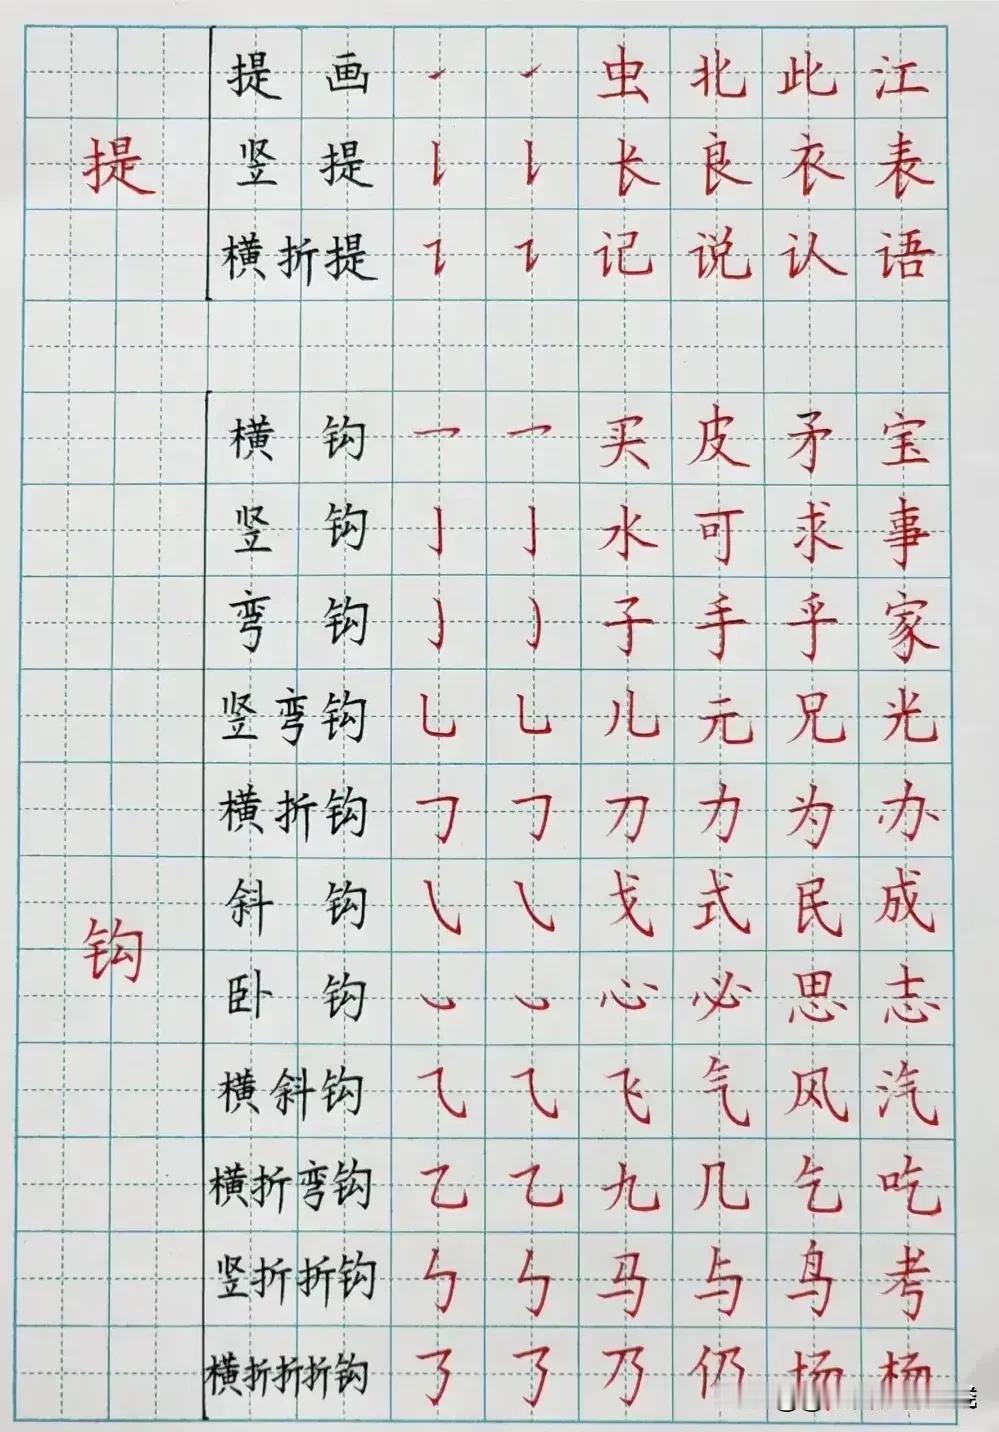 提 画 ㇀ ㇀ 虫 北 此 江
提
竖 提 𠄌 𠄌 长 良 衣 表
横折提 ㇊ ㇊ 记 说 认 语
横 钩 乛 乛 买 皮 矛 宝
竖 钩 亅 亅 水 可 求 事
弯 钩 ㇁ ㇁ 子 手 乎 家
竖弯钩 乚 乚 儿 元 兄 光
横折钩 𠃌 𠃌 刀 力 为 办
斜 钩 ㇂ ㇂ 戈 式 民 成
钩
卧 钩 ㇃ ㇃ 心 必 思 志
横斜钩 ⺄ ⺄ 飞 气 风 汽
横折弯钩 乙 乙 九 几 乞 吃
竖折折钩 ㇉ ㇉ 马 与 鸟 考
横折折折钩 ㇡ ㇡ 乃 仍 场 杨